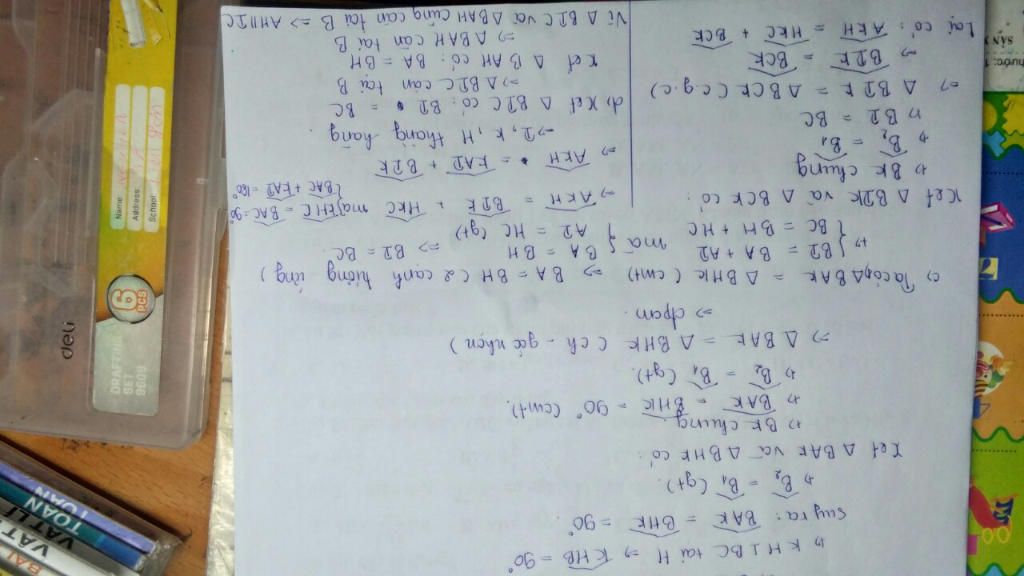 +) KH ⊥ BC tại H => $\widehat{KHB}$ = 90°
Suy ra: $\widehat{BAK}$ = $\widehat{BHK}$ = 90°.
+) $\widehat{B_2}$ = $\widehat{B_1}$ (gt).
Xét Δ BAK và Δ BHK có:
+) BK chung.
+) $\widehat{BAK}$ = $\widehat{BHK}$ = 90° (cmt).
+) $\widehat{B_2}$ = $\widehat{B_1}$ (gt).
=> Δ BAK = Δ BHK (ch - góc nhọn)
=> đpcm.
c) Ta có: Δ BAK = Δ BHK (cmt) => BA = BH (2 cạnh tương ứng)
+) { BI = BA + AI mà { BA = BH => BI = BC.
{ BC = BH + HC { AI = HC (gt)
Xét Δ BIK và Δ BCK có:
+) BK chung
+) $\widehat{B_2}$ = $\widehat{B_1}$
+) BI = BC
=> Δ BIK = Δ BCK (c.g.c)
=> $\widehat{BIK}$ = $\widehat{BCK}$
Lại có: $\widehat{AKH}$ = $\widehat{HKC}$ + $\widehat{BCK}$
=> $\widehat{AKH}$ = $\widehat{BIK}$ + $\widehat{HKC}$ mà { $\widehat{KHC}$ = $\widehat{BAC}$ = 90°
{ $\widehat{BAC}$ + $\widehat{KAI}$ = 180°
=> $\widehat{AKH}$ = $\widehat{KAI}$ + $\widehat{BIK}$
=> I, K, H thẳng hàng.
d) Xét Δ BIC có: BI = BC
=> Δ BIC cân tại B
Xét Δ BAH có: BA = BH
=> Δ BAH cân tại B
Vì Δ BIC và Δ BAH cùng cân tại B => AH//IC
deli
6 PCS
DRAFTING SET 9609
Name:
Address:
School:
TOÁN
VẬT LÍ